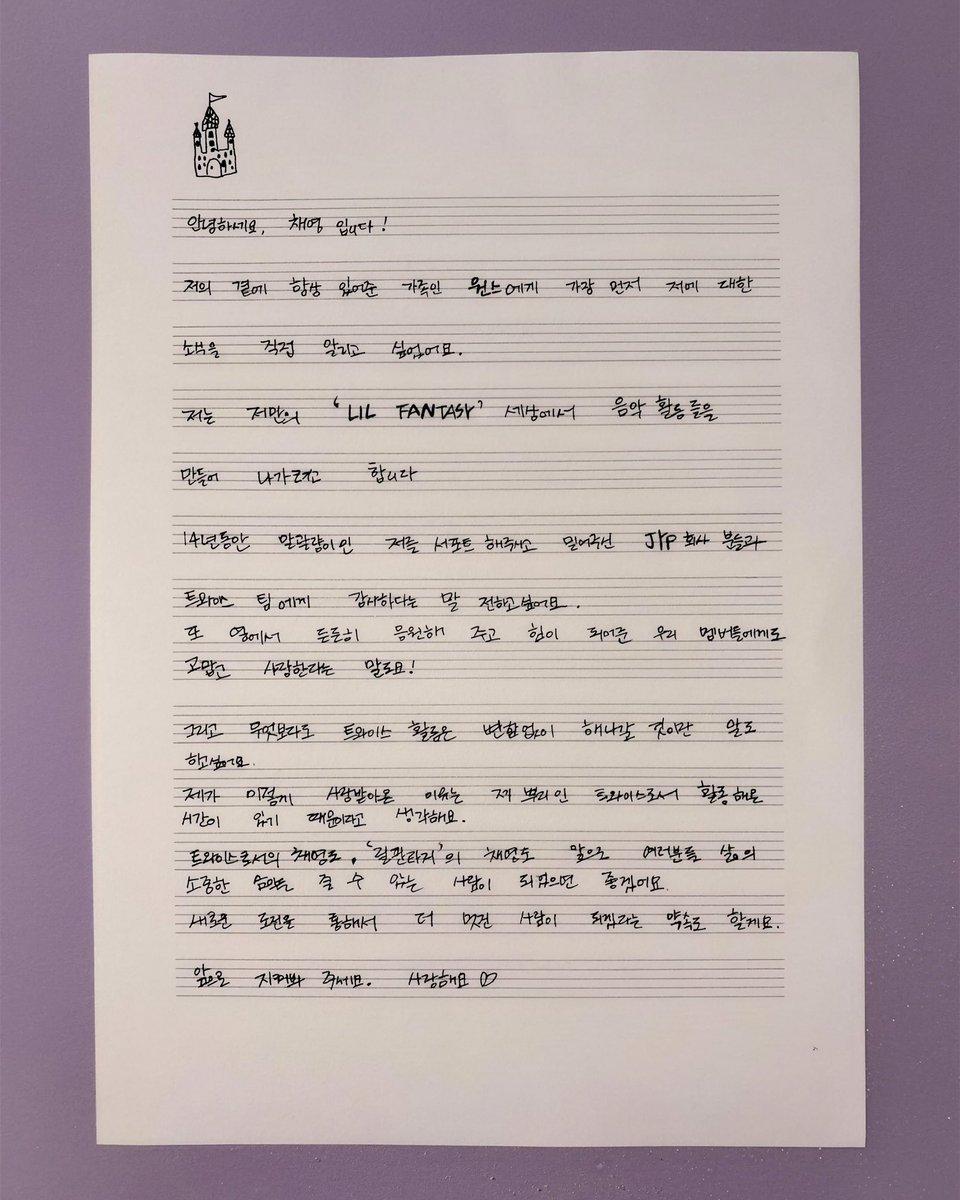 안녕하세요, 채영 입니다!
저의 곁에 항상 있어준 가족인 원스에게 가장 먼저 저에 대한
소식을 직접 알리고 싶었어요.
저는 저만의 'LIL FANTASY' 세상에서 음악 활동들을
만들어 나가려고 합니다
14년동안 말괄량이인 저를 서포트 해주시고 믿어주신 JYP 회사 분들과
트와이스 팀에게 감사하다는 말 전하고싶어요.
또 옆에서 든든히 응원해 주고 힘이 되어준 우리 멤버들에게도
고맙고 사랑한다는 말도요!
그리고 무엇보다도 트와이스 활동은 변함없이 해나갈 것이란 말도
하고싶어요.
제가 이렇게 사랑받아온 이유는 제 뿌리인 트와이스로서 활동해온
시간이 있기 때문이라고 생각해요.
트와이스로서의 채영도, '릴판타지'의 채영도 앞으로 여러분들 삶의
소중한 의미를 줄 수 있는 사람이 되었으면 좋겠어요.
새로운 도전을 통해서 더 멋진 사람이 되겠다는 약속도 할게요.
앞으로 지켜봐 주세요. 사랑해요 ♡